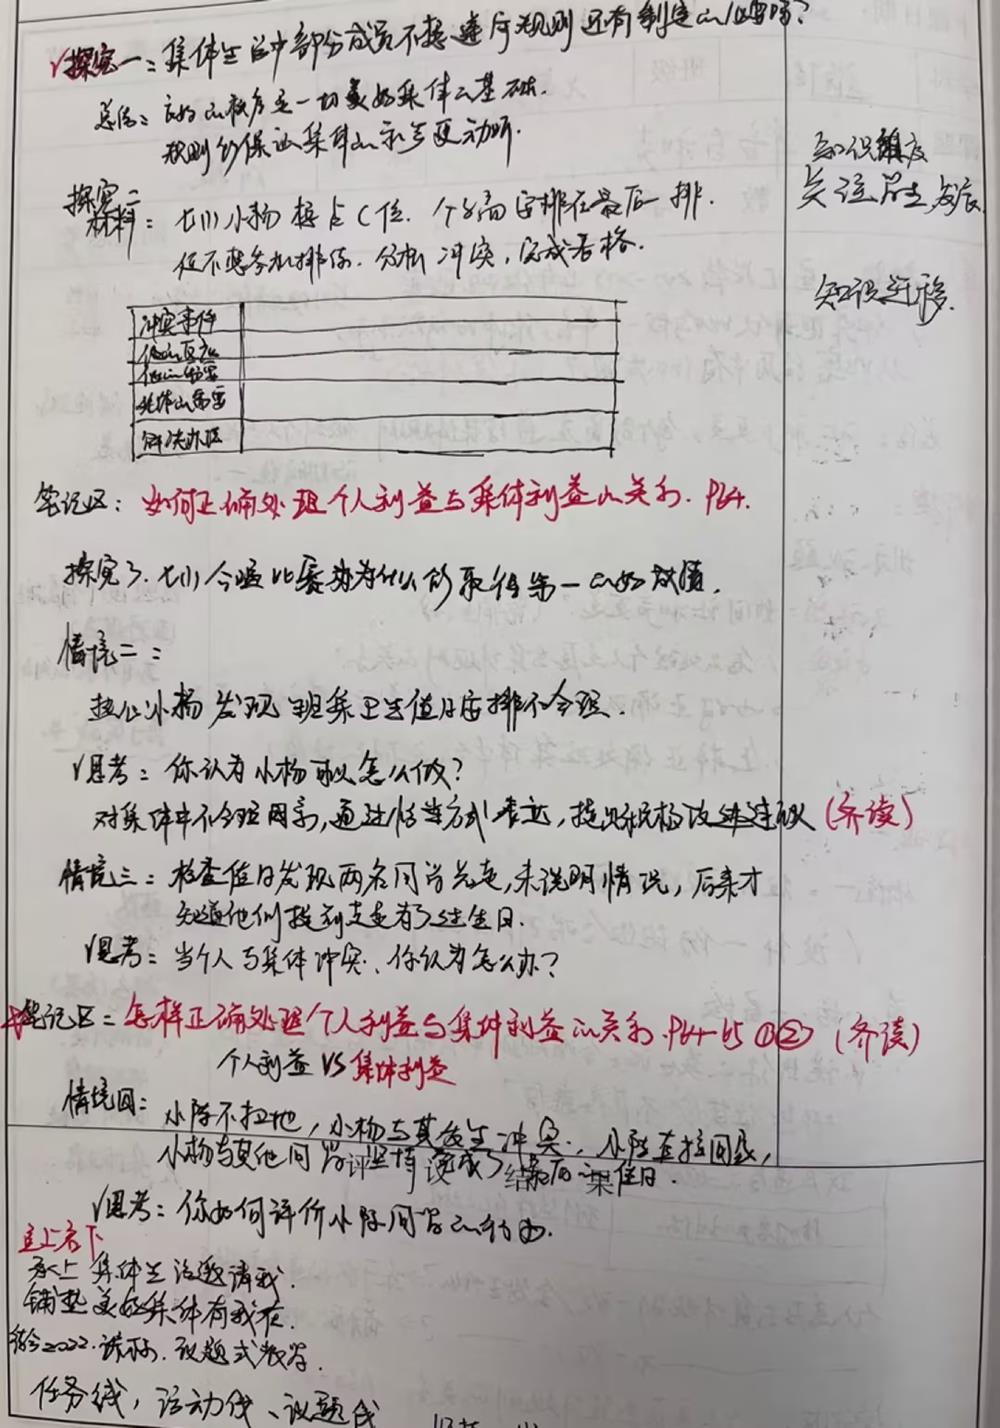 √探究一：集体生活中部分成员不想遵守规则还有制定的必要吗？
总结：良好的秩序是一切美好集体的基础.
规则能保证集体的和与更
探究二
材料：七(1)小杨想占C位.个子高安排在最后一排.
但不想参加排练.分析冲突,完成表格.
冲突事件
他的反应
他的需要
集体的需要
解决办法
知识维度
关注学生发展
知识迁移.
笔记区：如何正确处理个人利益与集体利益的关系.P64.
探究3.七(1)合唱比赛班为什么能取得第一的好成绩.
情境二：
热心小杨发现班集卫生值日安排不合理.
√思考：你认为小杨可以怎么做？
对集体中不合理因素,通过恰当方式表达,提出积极改进建议(齐读)
情境三：检查值日发现两名同学先走,未说明情况,后来才
知道他们提前走是为了过生日.
√思考：当个人与集体冲突、你认为怎么办？
笔记区：怎样正确处理个人利益与集体利益的关系.P64-65①②(齐读)
个人利益VS集体利益
情境四：小陈不扫地,小杨与其发生冲突.小陈直接回家,
小杨与其他同学坚持完成了最后的值日.
√思考：你如何评价小陈同学的行为.
立上启下
承上集体生活邀请我.
铺垫美好集体有我在.
结合2022.课标.议题式教学.
任务线,活动线、议题线